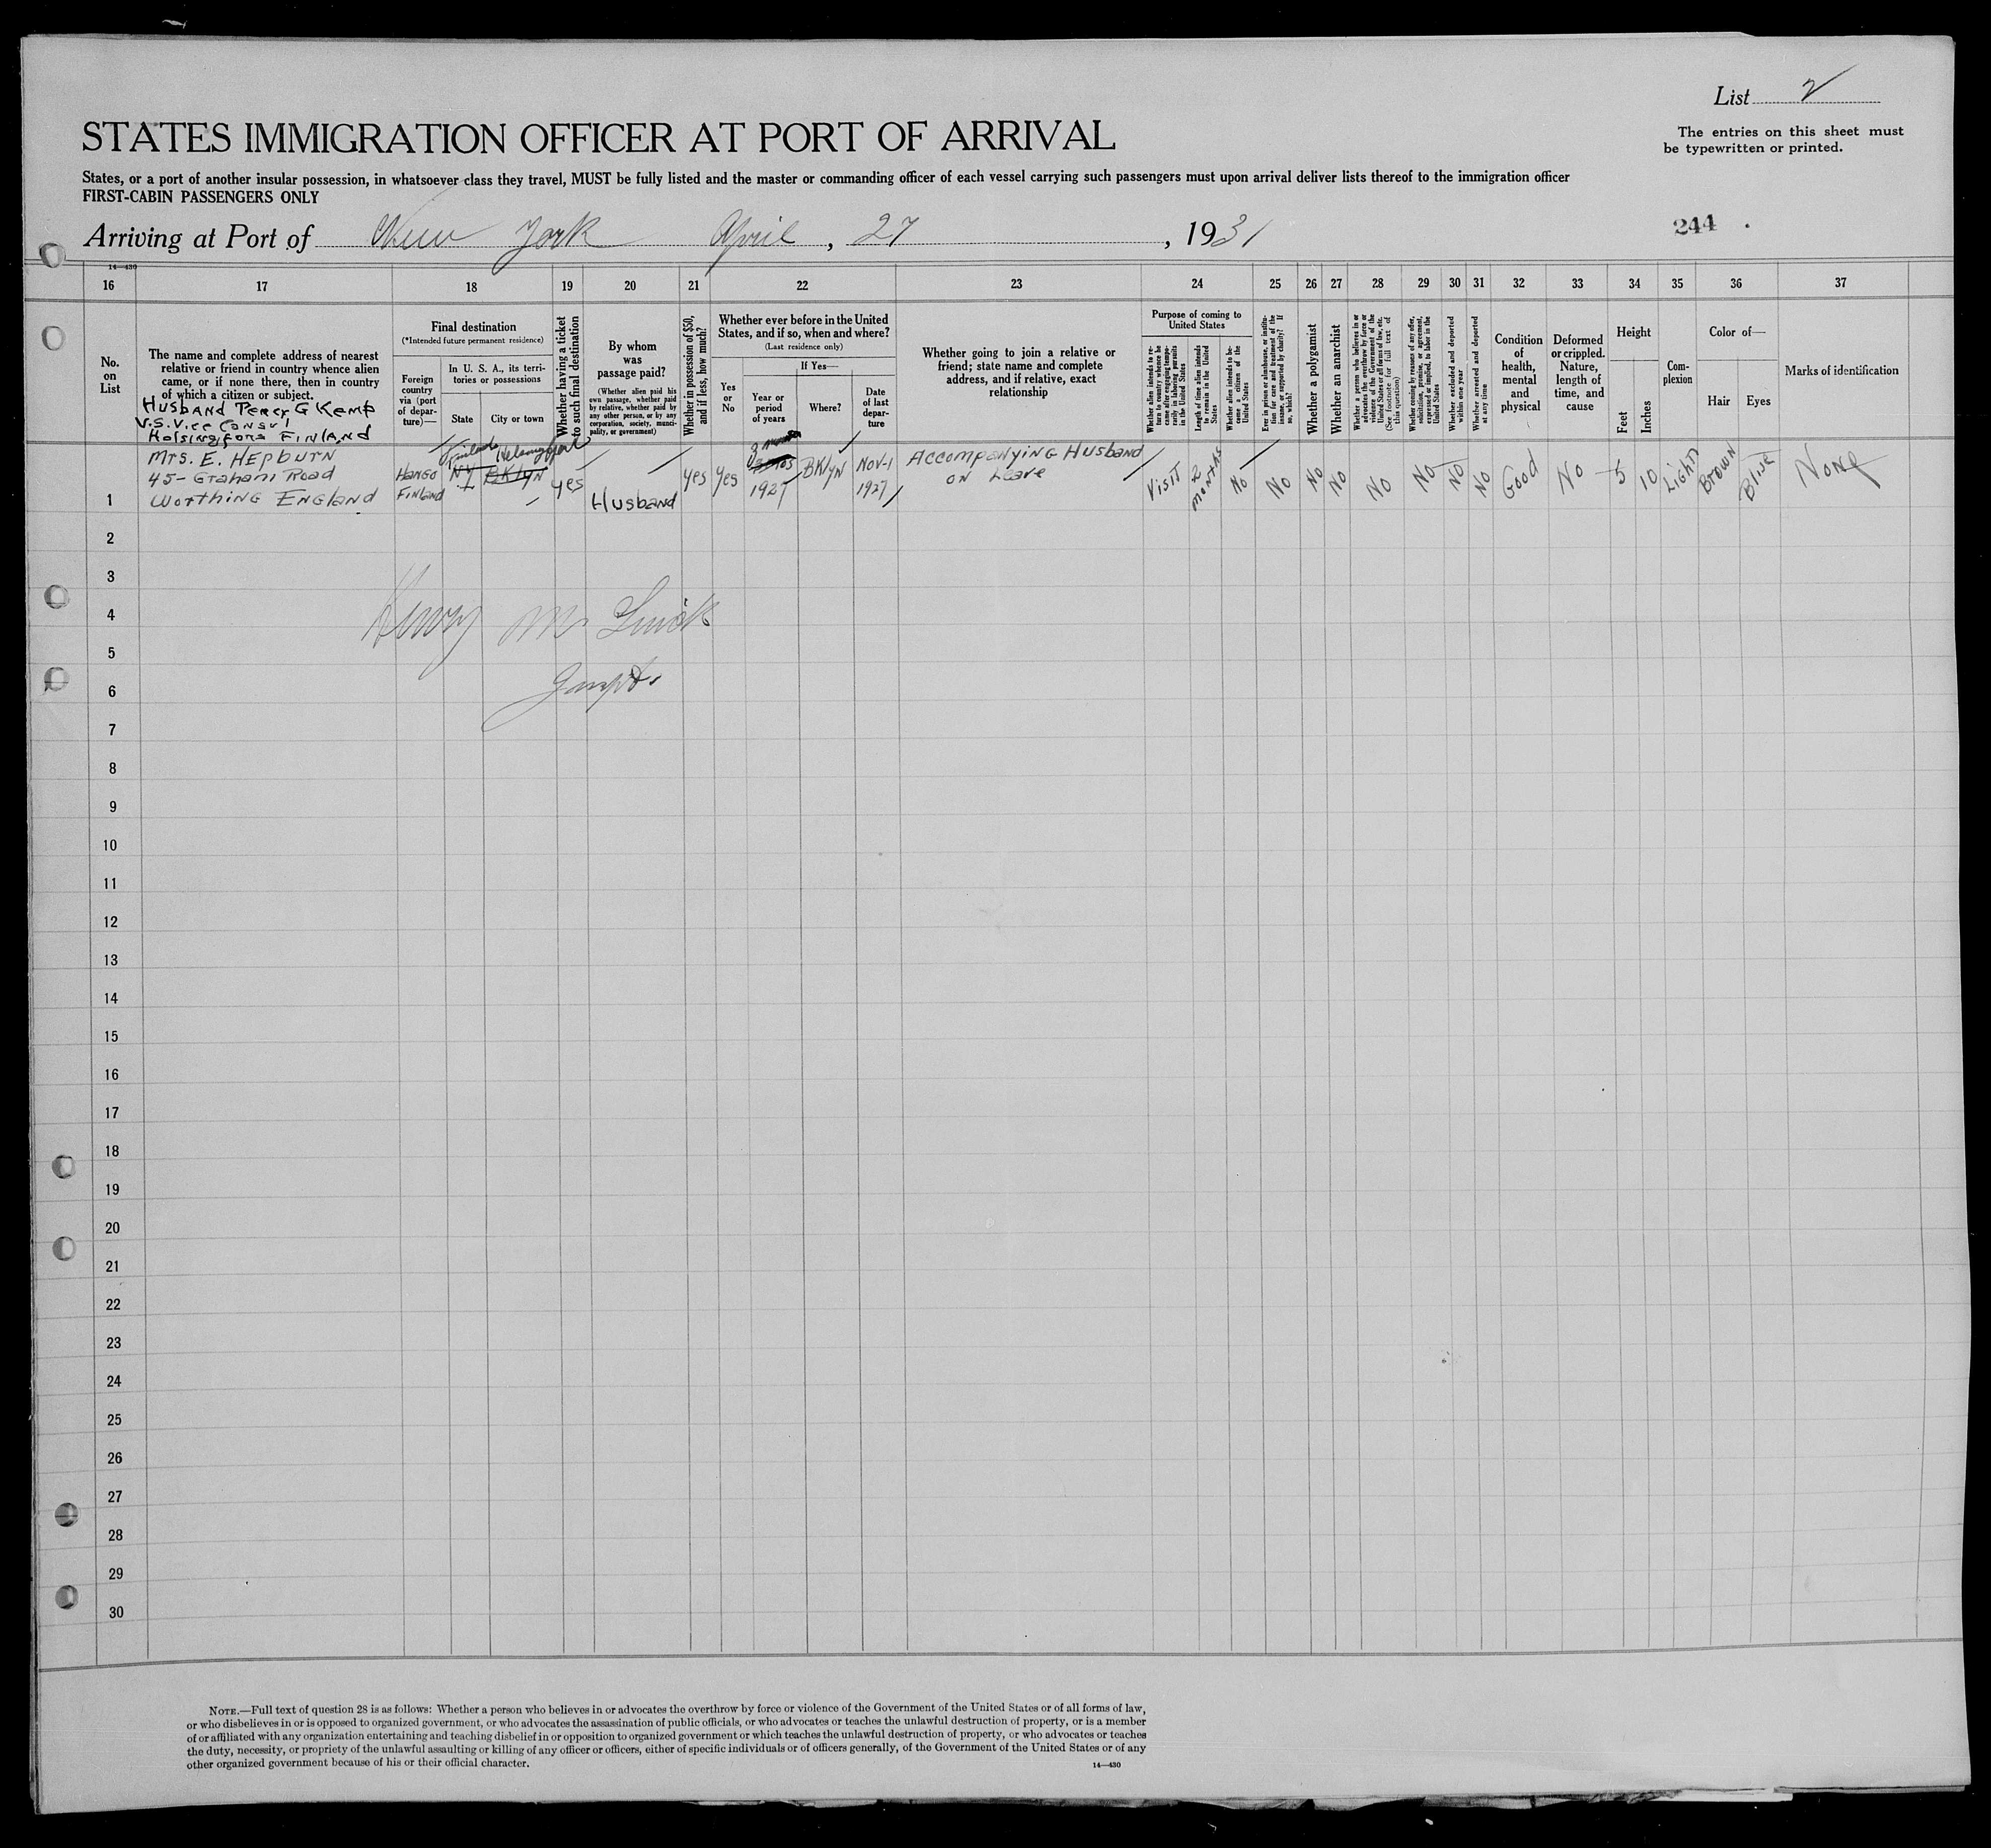 List 2
STATES IMMIGRATION OFFICER AT PORT OF ARRIVAL
The entries on this sheet must
be typewritten or printed.
States, or a port of another insular possession, in whatsoever class they travel, MUST be fully listed and the master or commanding officer of each vessel carrying such passengers must upon arrival deliver lists thereof to the immigration officer
FIRST-CABIN PASSENGERS ONLY
Arriving at Port of New York April, 27, 1931
244
14—430
16 17 18 19 20 21 22 23 24 25 26 27 28 29 30 31 32 33 34 35 36 37
No.
on
List
The name and complete address of nearest
relative or friend in country whence alien
came, or if none there, then in country
of which a citizen or subject.
Final destination
(*Intended future permanent residence)
Foreign
country
via (port
of depar-
ture)—
In U. S. A., its terri-
tories or possessions
State
City or town
Whether having a ticket
to such final destination
By whom
was
passage paid?
(Whether alien paid his
own passage, whether paid
by relative, whether paid by
any other person, or by any
corporation, society, munici-
pality, or government)
Whether in possession of $50,
and if less, how much?
Whether ever before in the United
States, and if so, when and where?
(Last residence only)
Yes
or
No
If Yes—
Year or
period
of years
Where?
Date
of last
depar-
ture
Whether going to join a relative or
friend; state name and complete
address, and if relative, exact
relationship
Purpose of coming to
United States
Whether alien intends to re-
turn to country whence he
came after engaging tempo-
rarily in laboring pursuits
in the United States
Length of time alien intends
to remain in the United
States
Whether alien intends to be-
come a citizen of the
United States
Ever in prison or almshouse, or institu-
tion for care and treatment of the
insane, or supported by charity? If
so, which?
Whether a polygamist
Whether an anarchist
Whether a person who believes in or
advocates the overthrow by force or
violence of the Government of the
United States or all forms of law, etc.
(See footnote for full text of
this question)
Whether coming by reasons of any offer,
solicitation, promise, or agreement,
expressed or implied, to labor in the
United States
Whether excluded and deported
within one year
Whether arrested and deported
at any time
Condition
of
health,
mental
and
physical
Deformed
or crippled.
Nature,
length of
time, and
cause
Height
Feet
Inches
Com-
plexion
Color of—
Hair
Eyes
Marks of identification
Husband Percy G Kemp
U.S. Vice Consul
Helsingfors FINLAND
Mrs. E. HEPBURN
45- Graham Road
Worthing ENGLAND
Hango
Finland
Finland
NY
Helsingfors
BKlyN
yes
Husband
yes
yes
3 mos
1927
BKlyN
Nov-1
1927
Accompanying Husband
on Leave
Visit
2
months
No
No
No
No
No
No
No
No
Good
No
5
10
Light
Brown
Blue
None
1
2
3
4
5
6
7
8
9
10
11
12
13
14
15
16
17
18
19
20
21
22
23
24
25
26
27
28
29
30
NOTE.—Full text of question 28 is as follows: Whether a person who believes in or advocates the overthrow by force or violence of the Government of the United States or of all forms of law,
or who disbelieves in or is opposed to organized government, or who advocates the assassination of public officials, or who advocates or teaches the unlawful destruction of property, or is a member
of or affiliated with any organization entertaining and teaching disbelief in or opposition to organized government or which teaches the unlawful destruction of property, or who advocates or teaches
the duty, necessity, or propriety of the unlawful assaulting or killing of any officer or officers, either of specific individuals or of officers generally, of the Government of the United States or of any
other organized government because of his or their official character.
14—430